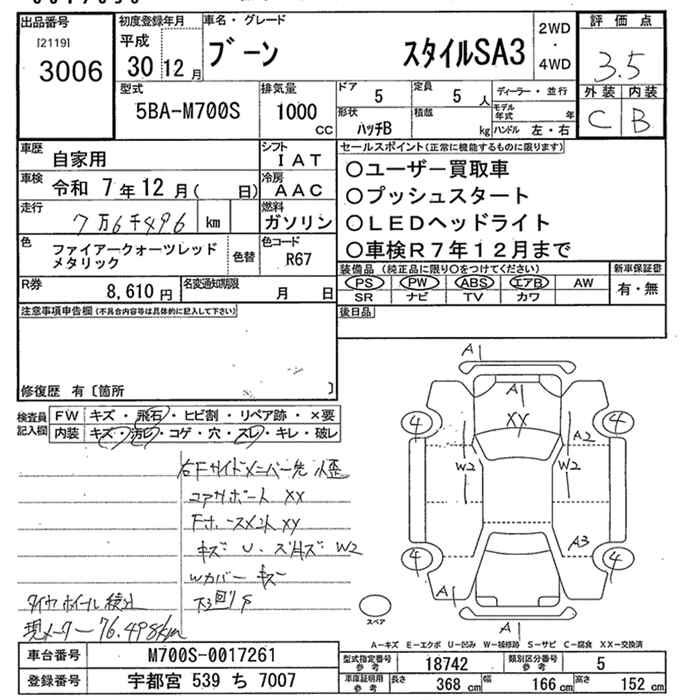 出品番号
[2119]
3006
初度登録年月
平成
30 12 月
車名・グレード
ブーン スタイルSA3
2WD
・
4WD
評価点
3.5
外装 内装
C B
型式
5BA-M700S
排気量
1000
cc
ドア
5
定員
5 人
形状
ハッチB
積載
kg
ディーラー・並行
モデル年式 年
ハンドル 左・右
車歴
自家用
シフト
IAT
車検
令和 7年12月( 日)
冷房
AAC
走行
7万6千496 km
燃料
ガソリン
色
ファイアークォーツレッド
メタリック
色替
色コード
R67
R券
8,610 円
名変通知期限
月 日
セールスポイント(正常に機能するものに限ります)
○ユーザー買取車
○プッシュスタート
○LEDヘッドライト
○車検R7年12月まで
装備品 (純正品に限り○をつけてください)
新車保証書
PS PW ABS エアB AW
SR ナビ TV カワ
有・無
注意事項申告欄(不具合内容等は具体的に記入して下さい)
後日品
修復歴 有〔箇所 〕
検査員
記入欄
FW キズ・飛石・ヒビ割・リペア跡・×要
内装 キズ・汚れ・コゲ・穴・スレ・キレ・破レ
右Fサイドメンバー先 小歪
コアサポート XX
キズ U. ズ W2
Wカバー キズ
下回りサ
タイヤホイール
現メーター 76.498km
A1
A1
XX
4
4
A2
W2
W2
A3
4
4
A1
A1
スペア
A-キズ E-エクボ U-凹み W-補修跡 S-サビ C-腐食 XX-交換済
車台番号
M700S-0017261
型式指定番号
参考
18742
類別区分番号
参考
5
登録番号
宇都宮 539 ち 7007
車庫証明用
参考
長さ
368 cm
幅
166 cm
高さ
152 cm